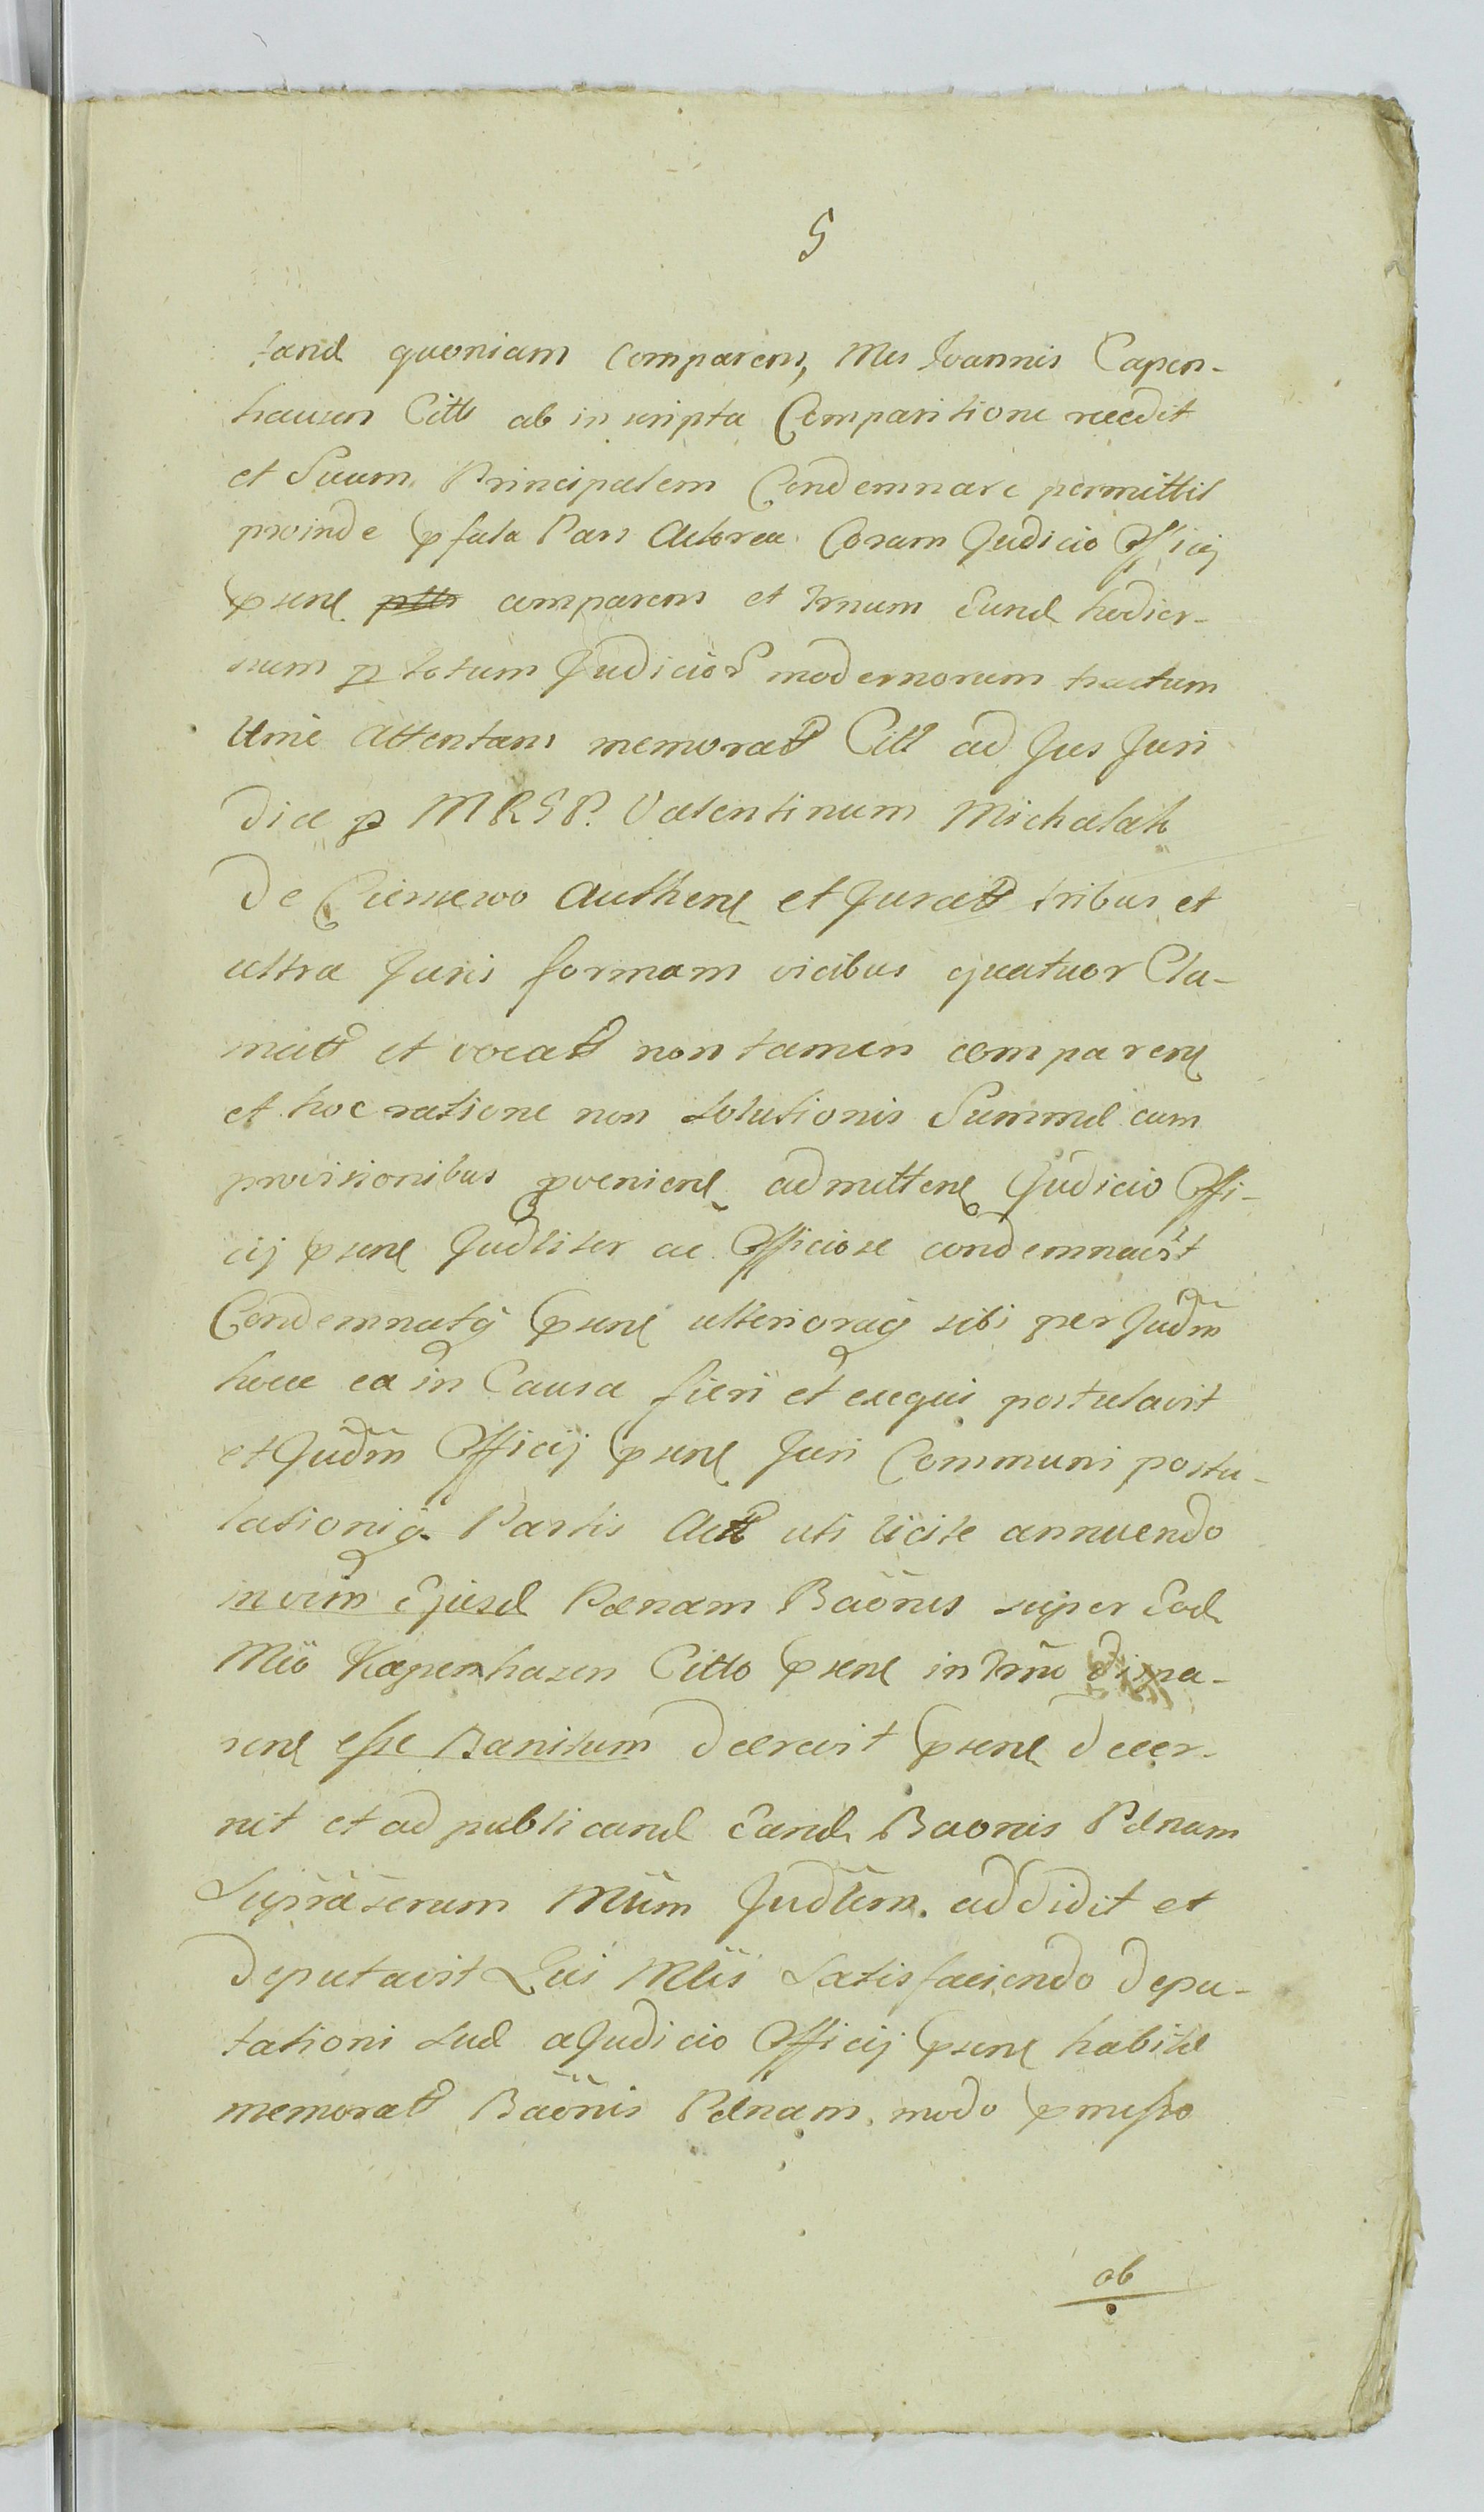 5
tand quoniam comparens, Mcus Joannis Capen-
hausen Citti ab inscripta Comparitione recedit
et Suum Principalem Condemnare permittit
proinde pfata Pars Actorea Coram Judicio Officij
psene comparens et Trnum Eund hodier-
num p totum Judicior modernorum tractum
ttme attentans memorat Citt ad Jus Juri
dice p MRSP. Valentinum Michalak
De authene et Jurat tribus et
ultra Juris formam vicibus quatuor Cla-
mat et vocat non tamen comparene
et hoc ratione non Solutionis Summae cum
provisionibus pveniene admittene Judicio Offi-
cij psene Judliter ac Officiose condemnavit
Condemnatq psene ulterioraq sibi per Judm
hocce ea in Causa fieri et exequi postulavit
et Judm Officij psene Juri Communi postu-
lationiq Partis Act uti licite annuendo
in vim Ejusd Paenam Baonis super Eod
Mco Kapenhasen Citto psene in Trno
rene esse Banitum decrevit psene decer-
nit et ad publicand Eand Baonis Paenam
Mtrm Judlem addidit et
deputavit Qui Mtris Satisfaciendo depu-
tationi suae a Judicio Officij psene habitae
memorat Baonis Paenam modo pmisso
ob